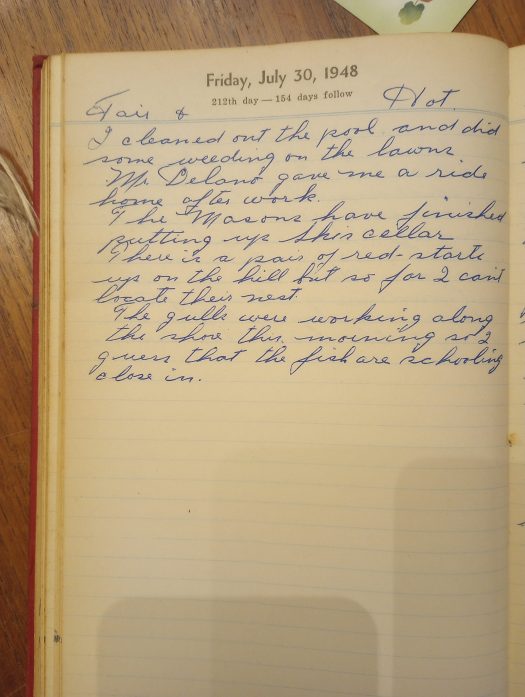 Friday, July 30, 1948
212th day — 154 days follow
Fair & Hot.
I cleaned out the pool and did
some weeding on the lawns.
Mr Delano gave me a ride
home after work.
The Masons have finished
putting up this cellar
There is a pair of red-starts
up on the hill but so far I can't
locate their nest.
The gulls were working along
the shore this morning so I
guess that the fish are schooling
close in.